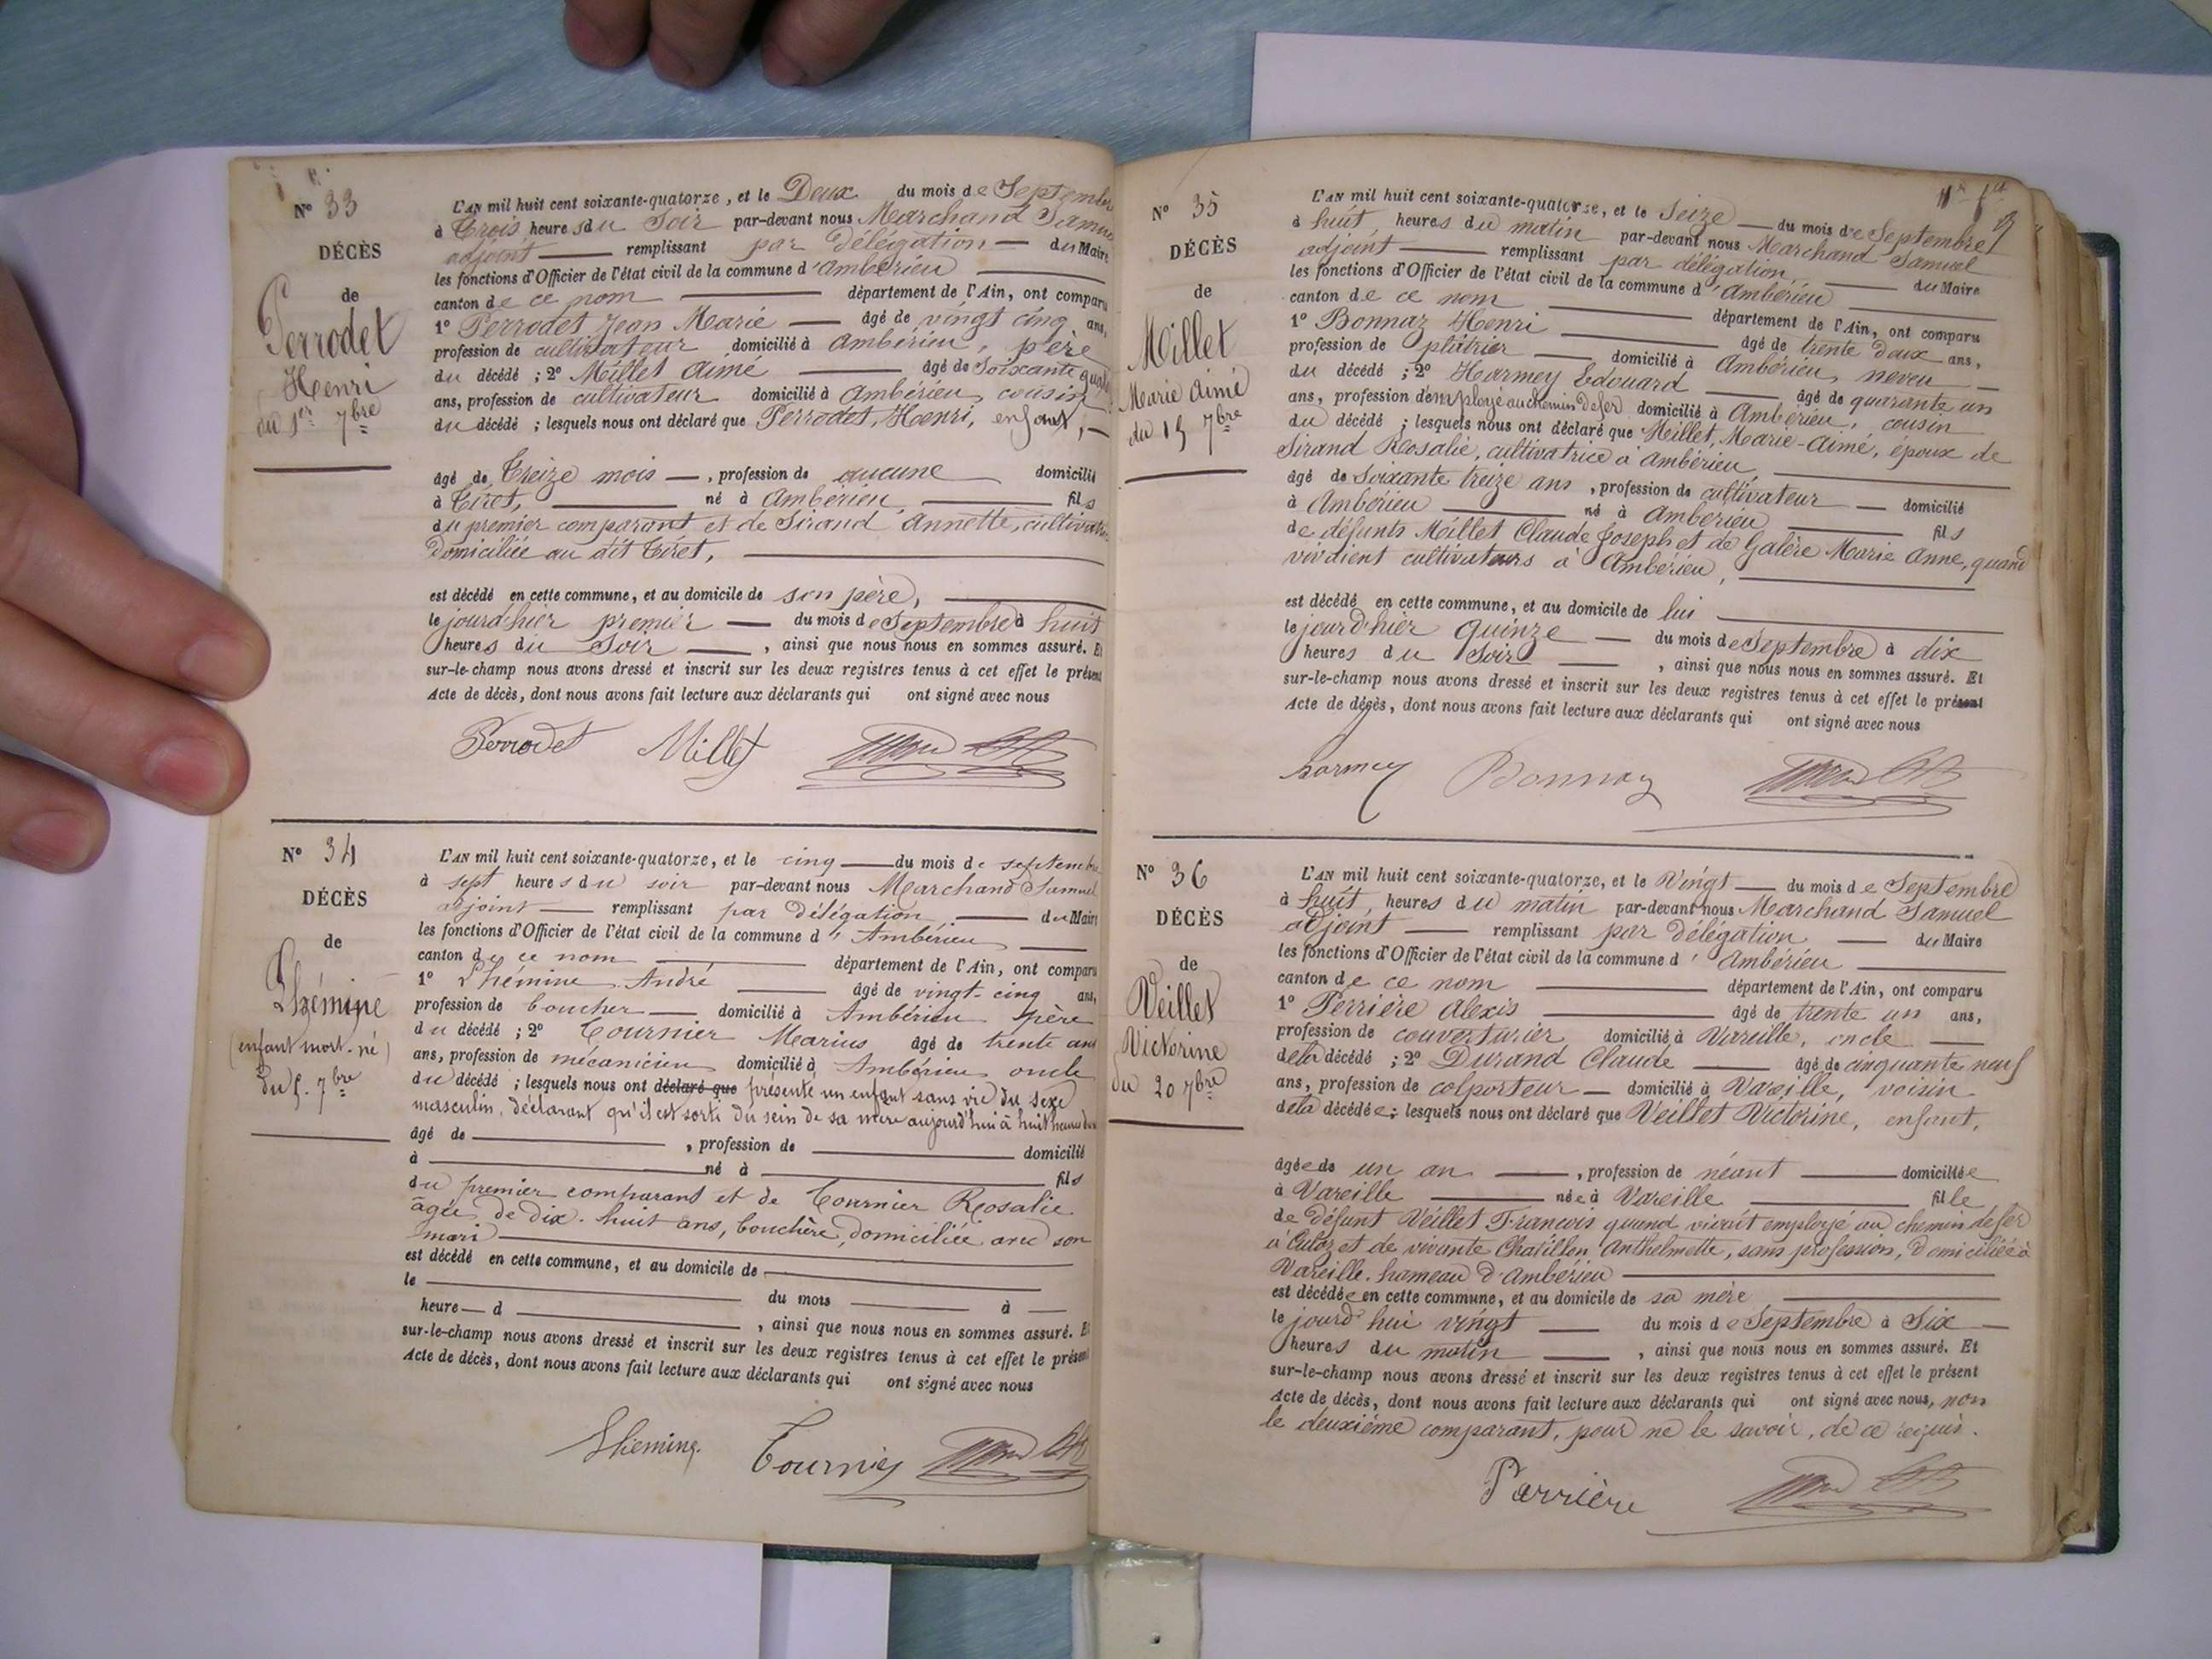 N° 33
DÉCÈS
de
Perrodet
Henri
du 1er 7bre
L'AN mil huit cent soixante-quatorze, et le Deux du mois de Septembre
à Trois heures du Soir par-devant nous Marchand Samuel
adjoint remplissant par délégation du Maire
les fonctions d'Officier de l'état civil de la commune d'Ambérieu
canton de ce nom département de l'Ain, ont comparu
1° Perrodet Jean Marie âgé de vingt cinq ans,
profession de cultivateur domicilié à Ambérieu, père
du décédé ; 2° Millet Aimé âgé de Soixante quat
ans, profession de cultivateur domicilié à Ambérieu, cousin
du décédé ; lesquels nous ont déclaré que Perrodet, Henri, enfant,
âgé de Treize mois , profession de aucune domicilié
à Tiret, né à Ambérieu, fils
du premier comparant et de Sirand Annette, cultivatr
domiciliée au dit Tiret,
est décédé en cette commune, et au domicile de son père,
le jourd'hier premier du mois de Septembre à huit
heures du Soir , ainsi que nous nous en sommes assuré. Et
sur-le-champ nous avons dressé et inscrit sur les deux registres tenus à cet effet le présent
Acte de décès, dont nous avons fait lecture aux déclarants qui ont signé avec nous
Perrodet Millet
N° 34
DÉCÈS
de
Lhémine
(enfant mort-né)
du 5. 7bre
L'AN mil huit cent soixante-quatorze, et le cinq du mois de septembre
à sept heures du soir par-devant nous Marchand Samuel
adjoint remplissant par délégation, du Maire
les fonctions d'Officier de l'état civil de la commune d'Ambérieu
canton de ce nom département de l'Ain, ont comparu
1° Lhémine André âgé de vingt-cinq ans,
profession de boucher domicilié à Ambérieu père
du décédé ; 2° Tournier Marius âgé de trente ans
ans, profession de mécanicien domicilié à Ambérieu oncle
du décédé ; lesquels nous ont déclaré que présenté un enfant sans vie du sexe
masculin, déclarant qu'il est sorti du sein de sa mère aujourd'hui à huit heures du
âgé de , profession de domicilié
à né à fils
du premier comparant et de Tournier Rosalie
âgée de dix-huit ans, bouchère, domiciliée avec son
mari
est décédé en cette commune, et au domicile de
le du mois à
heure d , ainsi que nous nous en sommes assuré. Et
sur-le-champ nous avons dressé et inscrit sur les deux registres tenus à cet effet le présent
Acte de décès, dont nous avons fait lecture aux déclarants qui ont signé avec nous
Lhemine Tournier
N° 35
DÉCÈS
de
Millet
Marie Aimé
du 15 7bre
L'AN mil huit cent soixante-quatorze, et le Seize du mois de Septembre
à huit heures du matin par-devant nous Marchand Samuel
adjoint remplissant par délégation du Maire
les fonctions d'Officier de l'état civil de la commune d'Ambérieu
canton de ce nom département de l'Ain, ont comparu
1° Bonnaz Henri âgé de trente deux ans,
profession de plâtrier domicilié à Ambérieu, neveu
du décédé ; 2° Harmey Edouard âgé de quarante un
ans, profession d'employé au chemin de fer domicilié à Ambérieu, cousin
du décédé ; lesquels nous ont déclaré que Millet, Marie-Aimé, époux de
Sirand Rosalie, cultivatrice à Ambérieu
âgé de Soixante treize ans , profession de cultivateur domicilié
à Ambérieu né à Ambérieu fils
de défunts Millet Claude Joseph et de Galère Marie Anne, quand
vivaient cultivateurs à Ambérieu,
est décédé en cette commune, et au domicile de lui
le jourd'hier quinze du mois de Septembre à dix
heures du Soir , ainsi que nous nous en sommes assuré. Et
sur-le-champ nous avons dressé et inscrit sur les deux registres tenus à cet effet le présent
Acte de décès, dont nous avons fait lecture aux déclarants qui ont signé avec nous
harmey Bonnaz
N° 36
DÉCÈS
de
Veillet
Victorine
du 20 7bre
L'AN mil huit cent soixante-quatorze, et le Vingt du mois de Septembre
à huit heures du matin par-devant nous Marchand Samuel
adjoint remplissant par délégation du Maire
les fonctions d'Officier de l'état civil de la commune d'Ambérieu
canton de ce nom département de l'Ain, ont comparu
1° Perrière Alexis âgé de trente un ans,
profession de couverturier domicilié à Vareille, oncle
de la décédé ; 2° Durand Claude âgé de cinquante neuf
ans, profession de colporteur domicilié à Vareille, voisin
de la décédée ; lesquels nous ont déclaré que Veillet Victorine, enfant,
âgée de un an , profession de néant domiciliée
à Vareille née à Vareille fille
de défunt Veillet François quand vivait employé au chemin de fer
à Culoz et de vivante Chatillon Anthelmette, sans profession, domiciliée à
Vareille, hameau d'Ambérieu
est décédée en cette commune, et au domicile de sa mère
le jourd'hui vingt du mois de Septembre à Six
heures du matin , ainsi que nous nous en sommes assuré. Et
sur-le-champ nous avons dressé et inscrit sur les deux registres tenus à cet effet le présent
Acte de décès, dont nous avons fait lecture aux déclarants qui ont signé avec nous, non
le deuxième comparant, pour ne le savoir, de ce requis.
Parrière